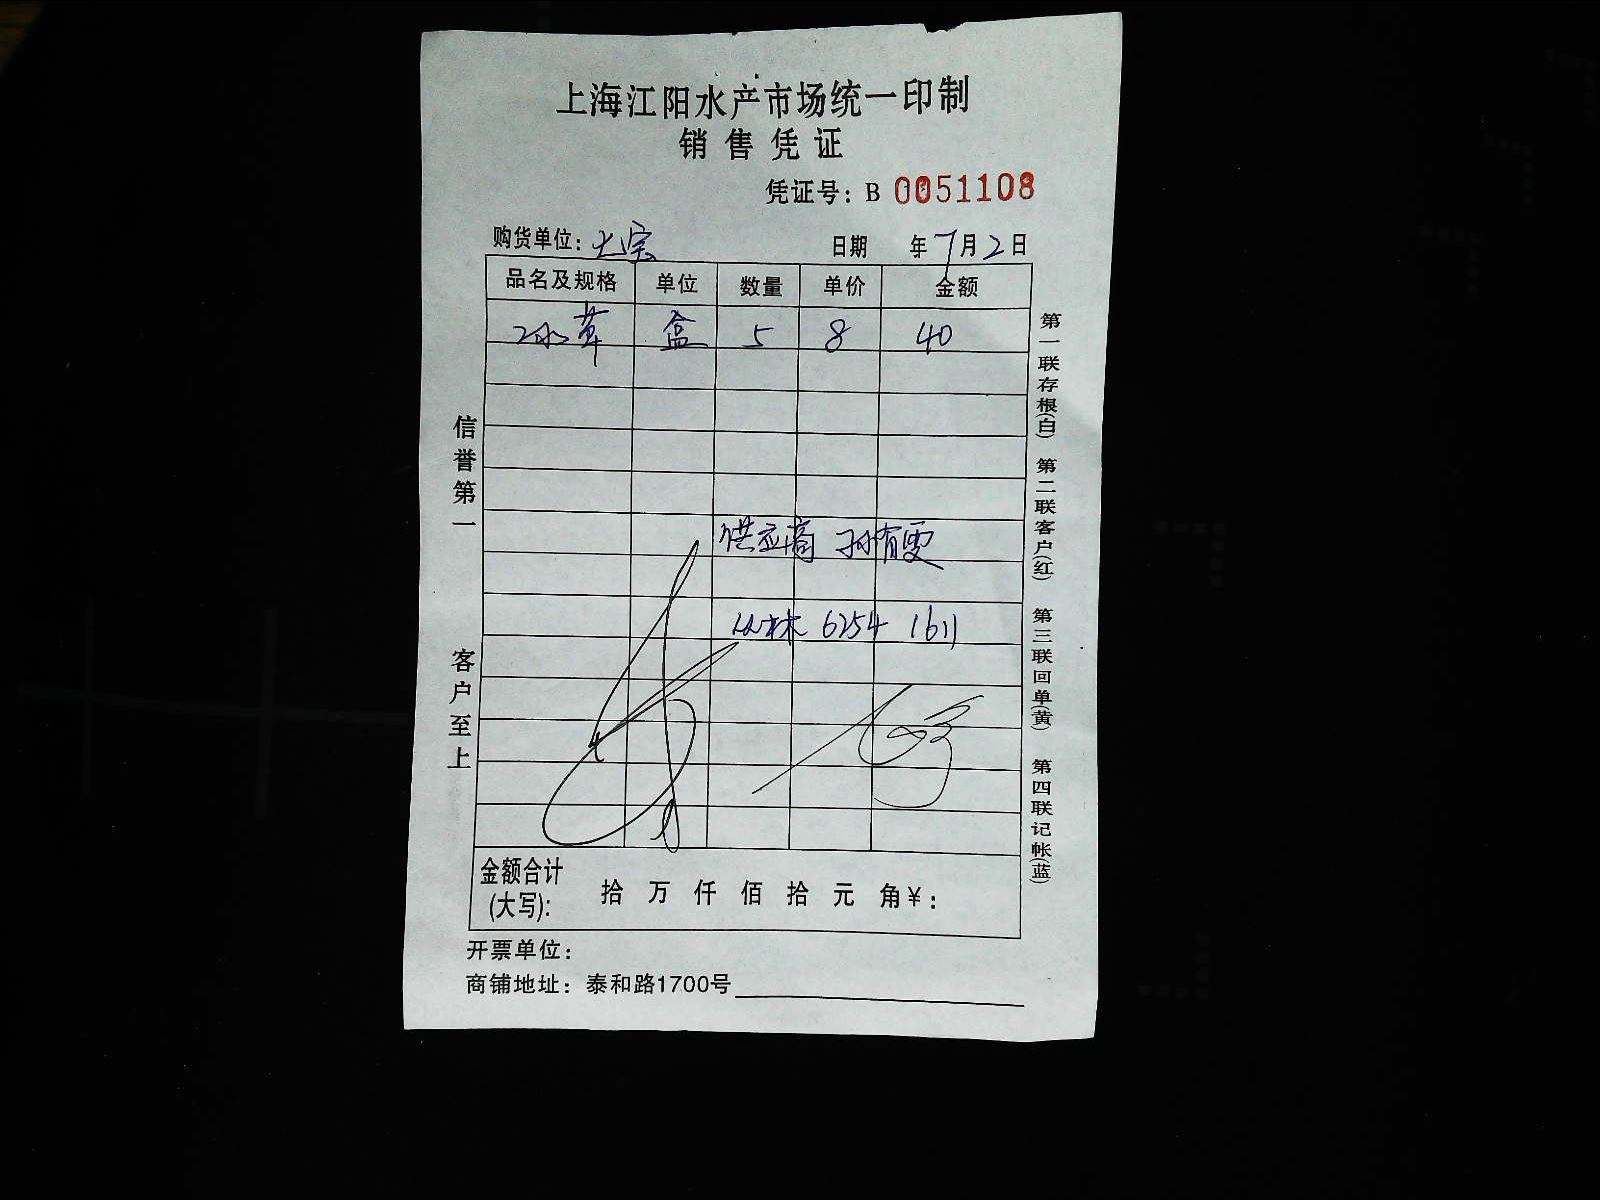 上海江阳水产市场统一印制
销售凭证
凭证号：B 0051108
购货单位：大宗 日期 年7月2日
品名及规格 单位 数量 单价 金额
冰草 盒 5 8 40
供应商 孙有雯
丛林 6254 1611
金额合计
(大写)： 拾 万 仟 佰 拾 元 角￥：
开票单位：
商铺地址：泰和路1700号
信誉第一 客户至上
第一联存根(白) 第二联客户(红) 第三联回单(黄) 第四联记帐(蓝)